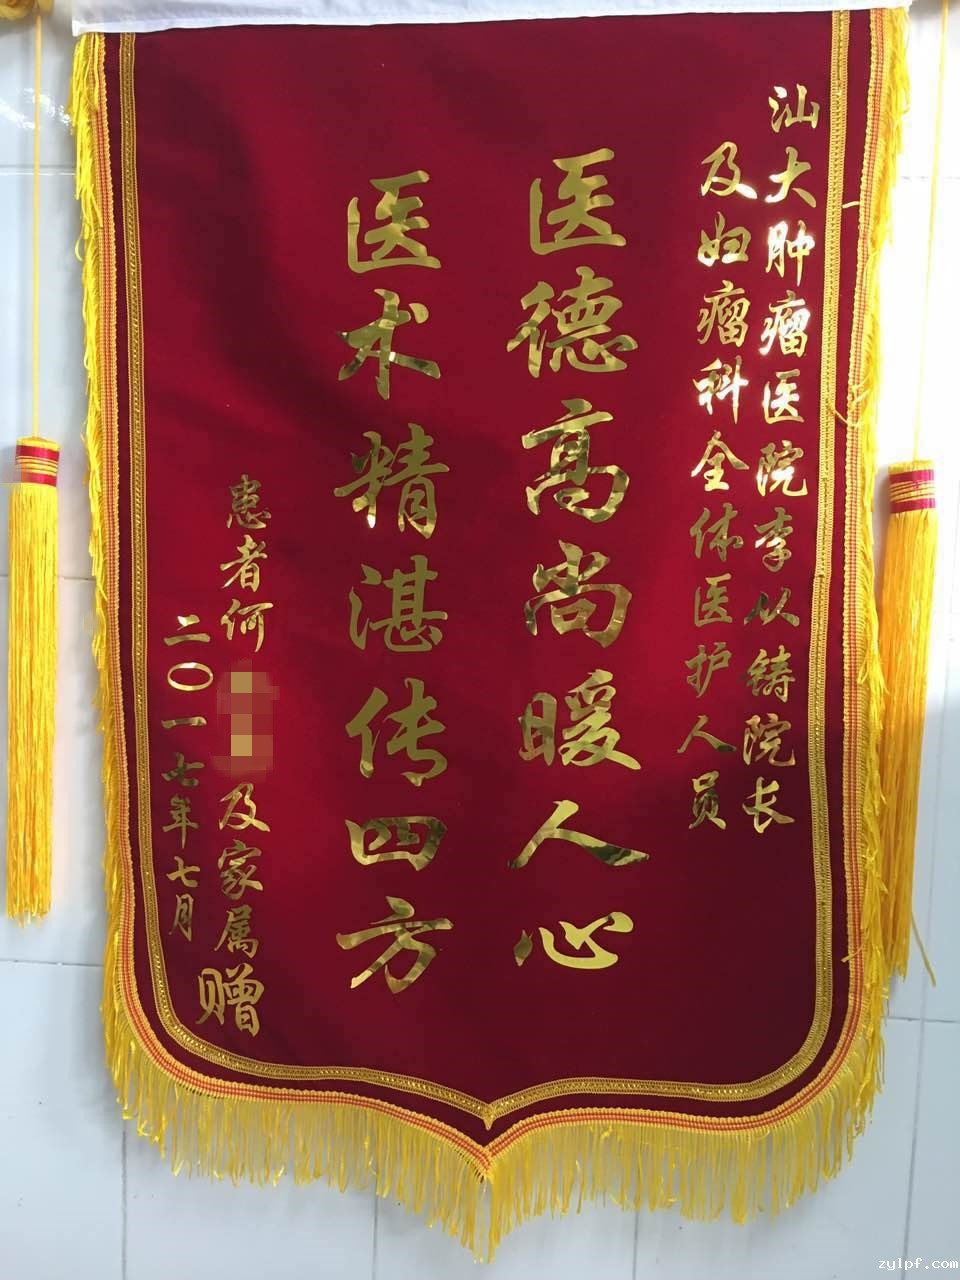 汕大肿瘤医院李从铸院长
及妇瘤科全体医护人员
医德高尚暖人心
医术精湛传四方
患者何
及家属赠
二〇一七年七月
zylpf.com